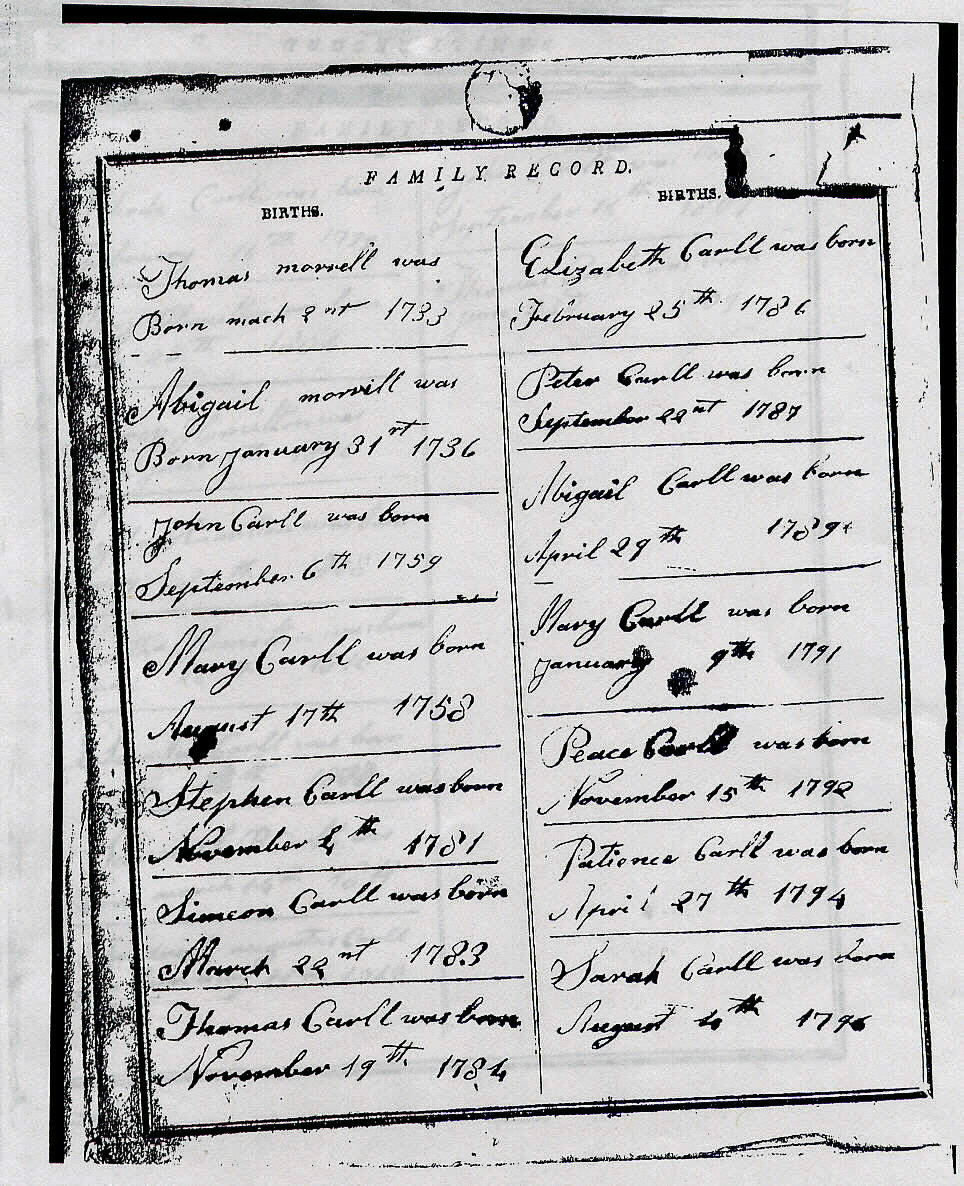 FAMILY RECORD.
BIRTHS.
Thomas morrell was
Born mach 2nt 1733
Abigail morrill was
Born January 31rt 1736
John Carll was born
September 6th 1759
Mary Carll was born
August 17th 1758
Stephen Carll was born
November 4th 1781
Simeon Carll was born
March 22nt 1783
Thomas Carll was born
November 19th 1784
BIRTHS.
Elizabeth Carll was born
February 25th 1786
Peter Carll was born
September 22nt 1787
Abigail Carll was born
April 29th 1789
Mary Carll was born
January 9th 1791
Peace Carll was born
November 15th 1792
Patience Carll was born
April 27th 1794
Sarah Carll was born
August 4th 1796